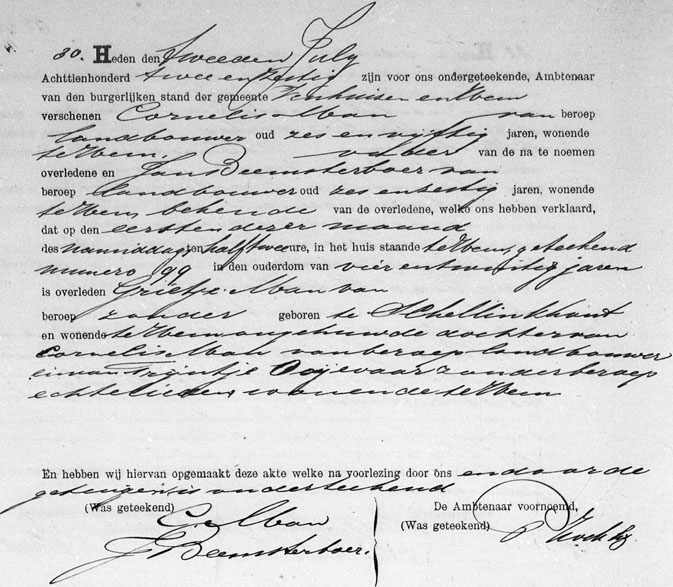 30. Heden den tweeden July
Achttienhonderd twee en zestig zijn voor ons ondergeteekende, Ambtenaar
van den burgerlijken stand der gemeente Venhuizen en Hem
verschenen Cornelis Man van beroep
landbouwer oud zes en vijftig jaren, wonende
te Hem, vader van de na te noemen
overledene en Jan Beemsterboer van
beroep landbouwer oud zes en sestig jaren, wonende
te Hem, bekende van de overledene, welke ons hebben verklaard,
dat op den eersten dezer maand
des namiddags ten half twee ure, in het huis staande te Hem, geteekend
numero 99 in den ouderdom van vier en twintig jaren
is overleden Grietje Man van
beroep zonder geboren te Schellinkhout
en wonende te Hem ongehuwde dochter van
Cornelis Man van beroep landbouwer
en van Trijntje Ooijevaar zonder beroep
echtelieden wonende te Hem
En hebben wij hiervan opgemaakt deze akte welke na voorlezing door ons en door de
getuigen is onderteekend
(Was geteekend) De Ambtenaar voornoemd,
C. Man (Was geteekend)
J Beemsterboer.